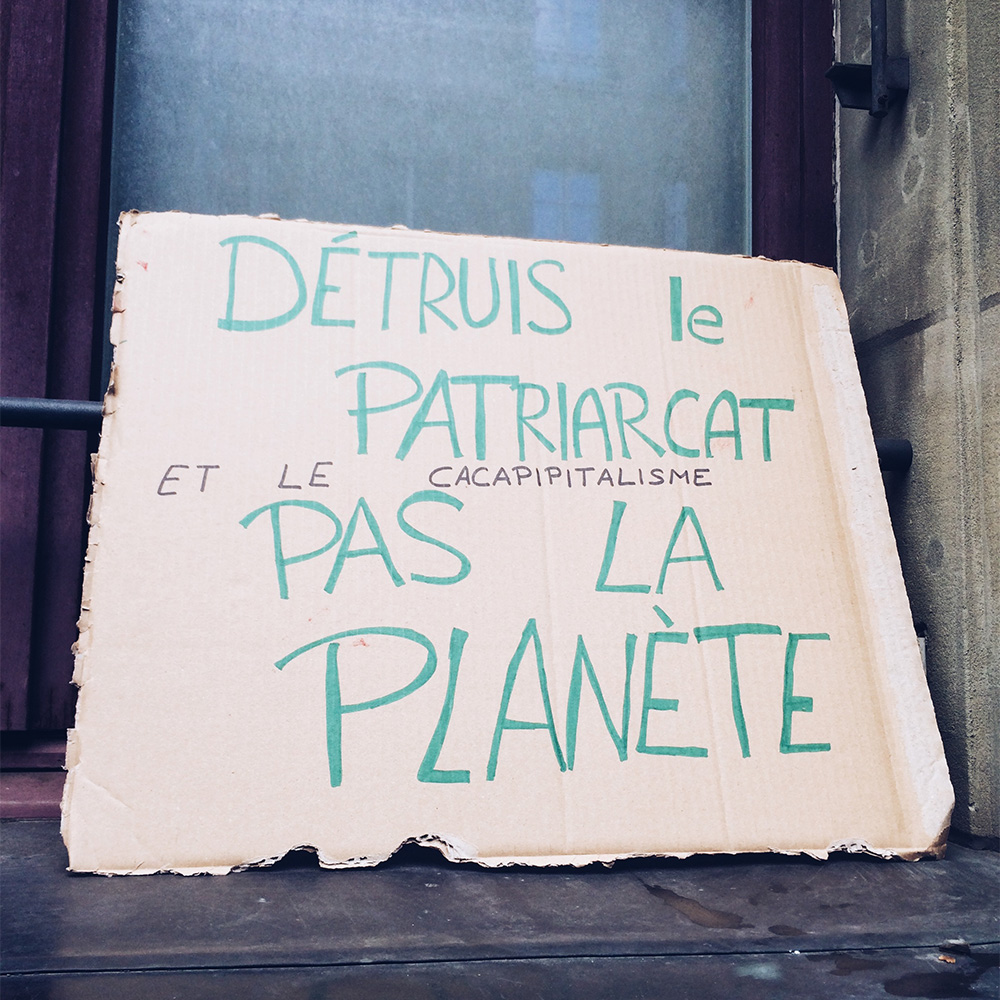 DÉTRUIS le
PATRIARCAT
ET LE CACAPIPITALISME
PAS LA
PLANÈTE